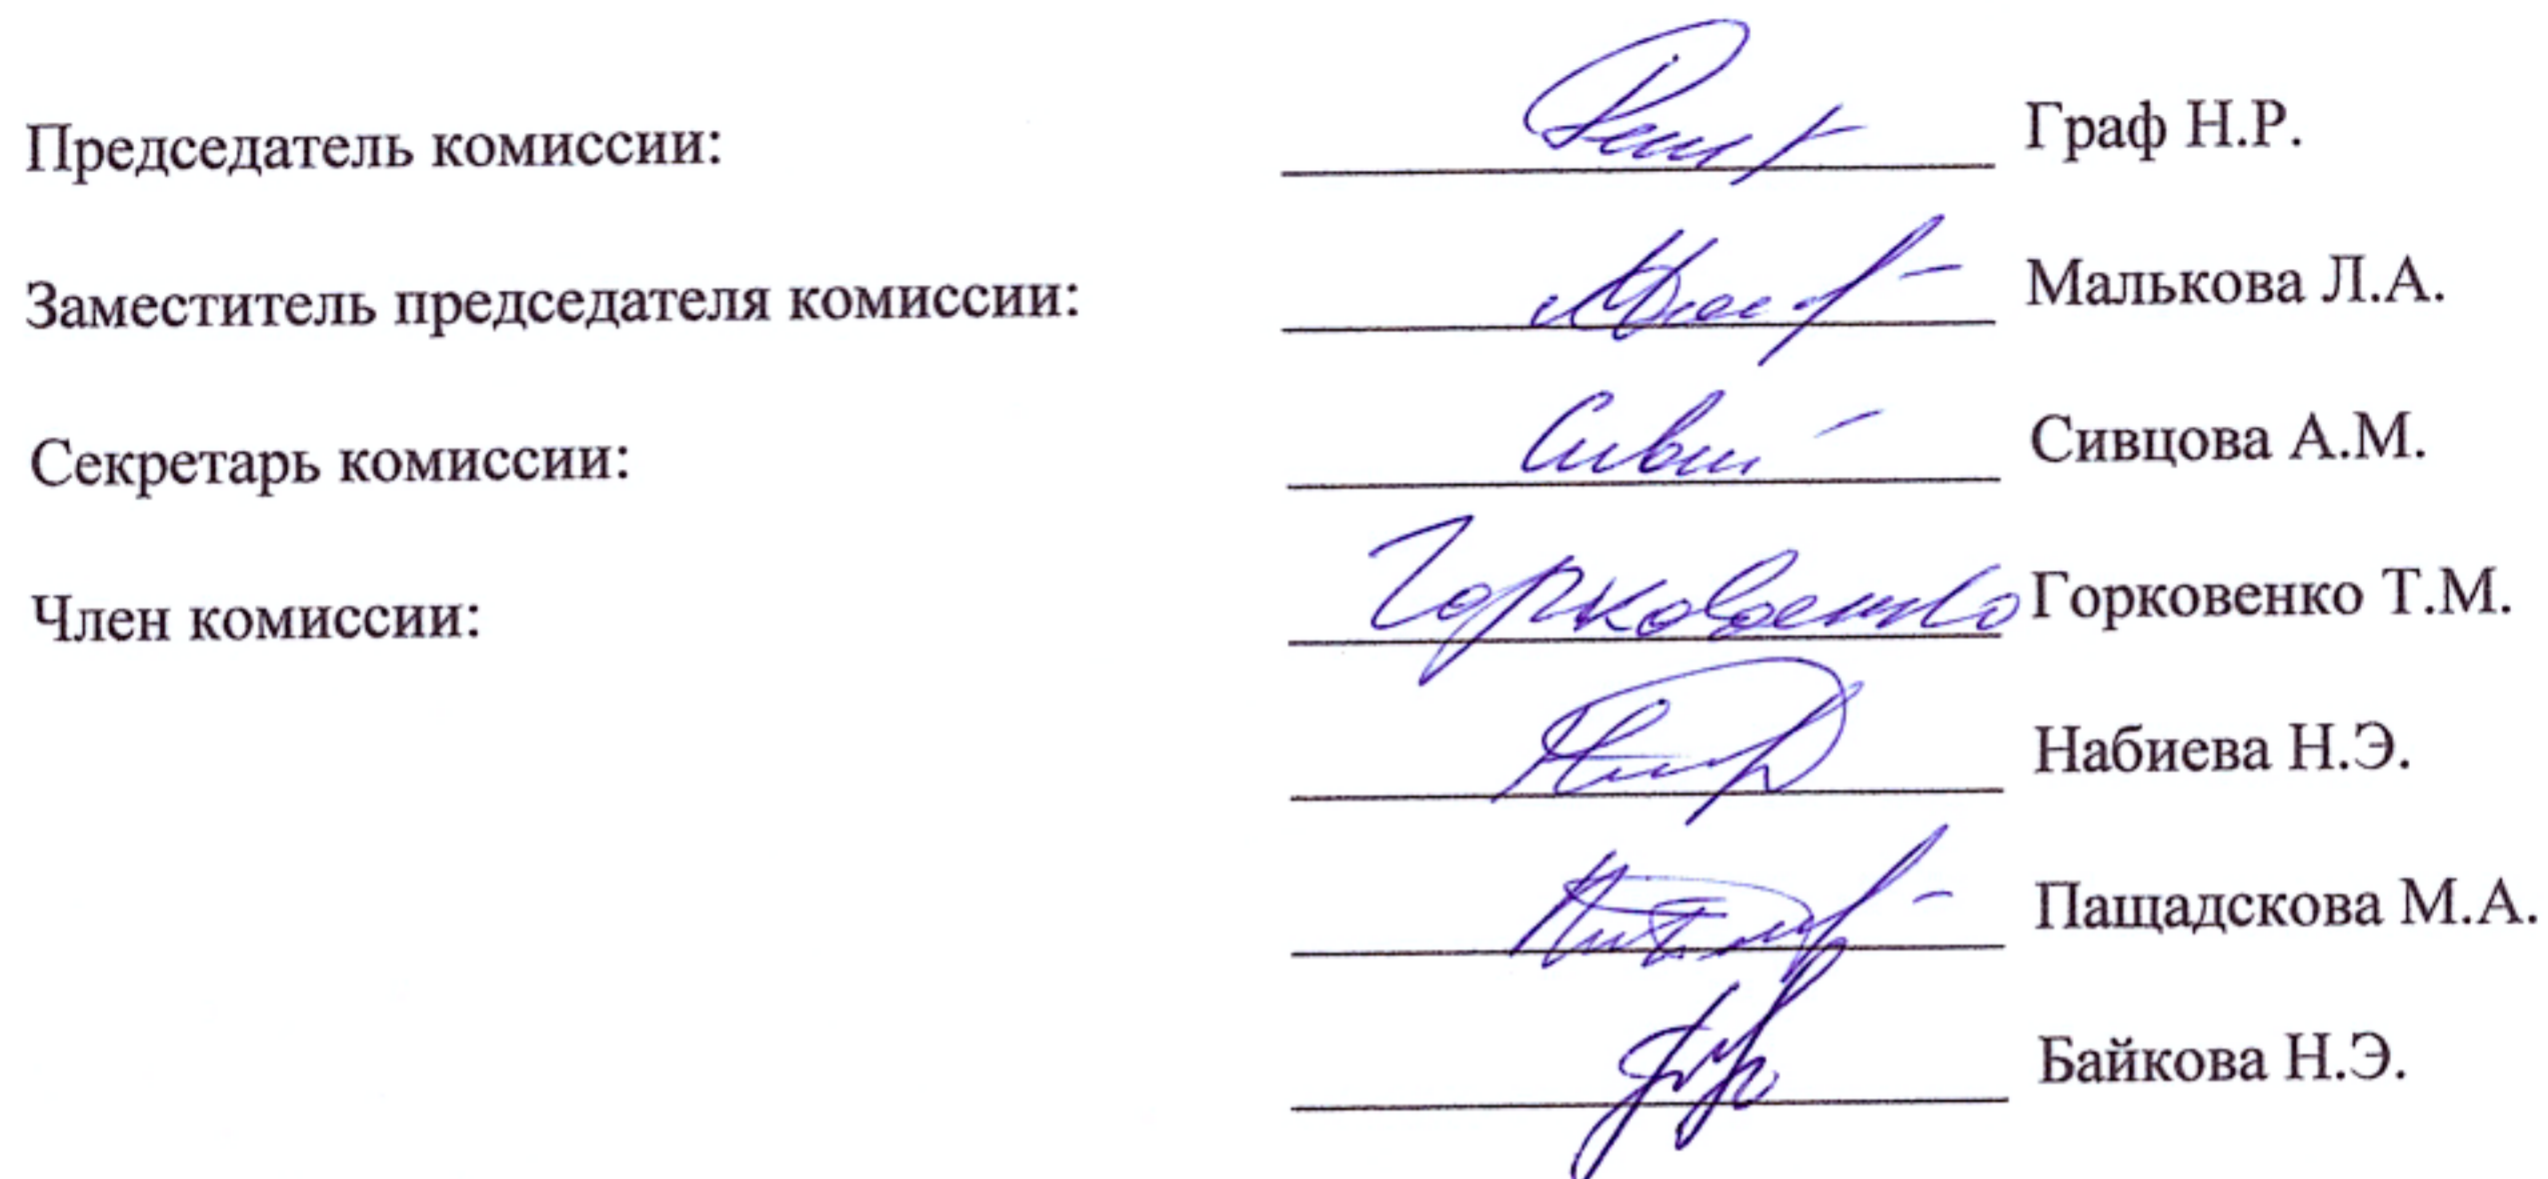 Председатель комиссии: Граф Н.Р.
Заместитель председателя комиссии: Малькова Л.А.
Секретарь комиссии: Сивцова А.М.
Член комиссии: Горковенко Горковенко Т.М.
Набиева Н.Э.
Пащадскова М.А.
Байкова Н.Э.